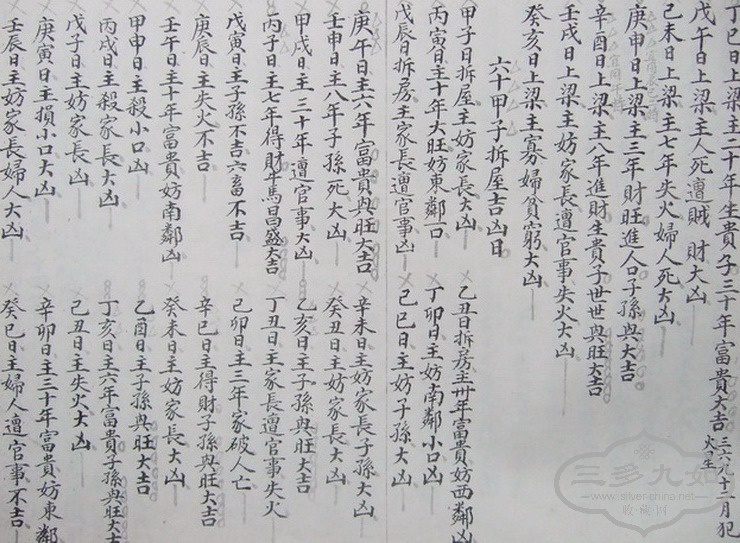 丁巳日上梁主二十年生貴子三十年富貴大吉 三六九十二月犯火星
戊午日上梁主人死遭賊財大凶
己未日上梁主七年失火婦人死大凶
庚申日上梁主三年財旺進人口子孫興大吉
辛酉日上梁主八年進財生貴子世世興旺大吉
壬戌日上梁主妨家長遭官事失火大凶
癸亥日上梁主寡婦貧窮大凶
六十甲子拆屋吉凶日
甲子日拆屋主妨家長大凶
乙丑日拆房主卅年富貴妨西鄰凶
丙寅日主十年大旺妨東鄰一口
丁卯日主妨南鄰小口凶
戊辰日拆房主家長遭官事凶
己巳日主妨子孫大凶
庚午日主六年富貴興旺大吉
辛未日主妨家長子孫大凶
壬申日主八年子孫死大凶
癸丑日主妨家長大凶
甲戌日主三十年遭官事大凶
乙亥日主子孫興旺大吉
丙子日主七年得財牛馬昌盛大吉
丁丑日主家長遭官事失火
戊寅日主子孫不吉六畜不吉
己卯日主三年家破人亡
庚辰日主失火不吉
辛巳日主得財子孫興旺大吉
壬午日主十年富貴妨南鄰凶
癸未日主妨家長大凶
甲申日主殺小口凶
乙酉日主子孫興旺大吉
丙戌日主殺家長大凶
丁亥日主六年富貴子孫興旺大吉
戊子日主妨家長凶
己丑日主失火大凶
庚寅日主損小口大凶
辛卯日主三十年富貴妨東鄰
壬辰日主妨家長婦人大凶
癸巳日主婦人遭官事不吉
三多九如
www.silver-china.net
收藏网